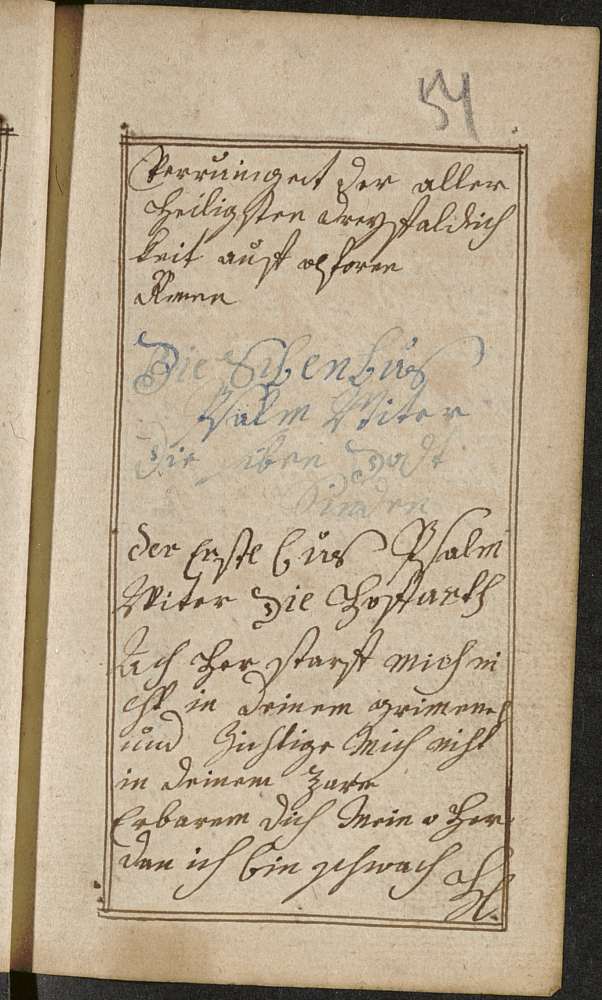 54
Verruinigeit der aller
Heiligsten dreyfaldich
keit aust
Amen
Die Siben bus
Psalm Witer
die siben Dodt
sinden
der Erste bus Psalm
Witer Die Hoffarth
Ach Her starft Mich ni
cht in deinem grimenn
und Zichtige Mich niht
in deinem Zarn
Erbarem dich Mein o Her
dan ich bin schwach
H